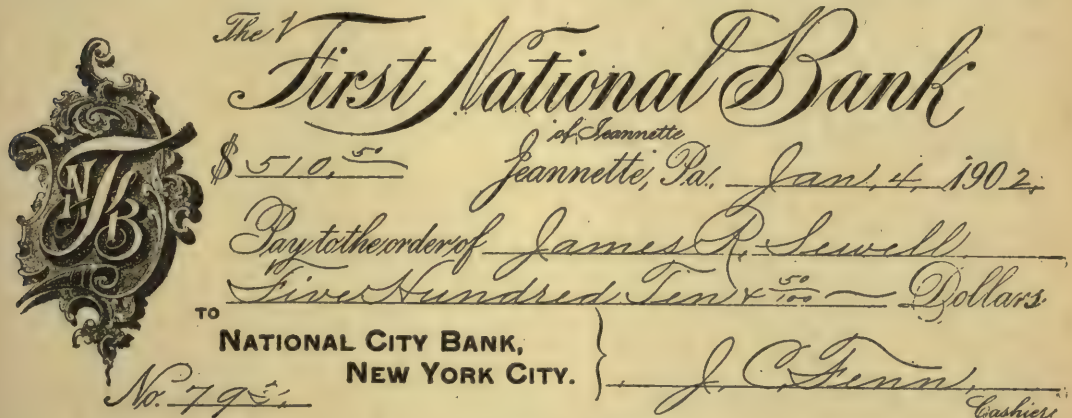 The First National Bank
of Jeannette
$ 510.50 Jeannette, Pa. Jan. 4, 1902.
Pay to the order of James R. Sewell
Five Hundred Ten & 50/100 — Dollars
TO
NATIONAL CITY BANK,
NEW YORK CITY.
J. C. Fenn
No. 795. Cashier
FNB